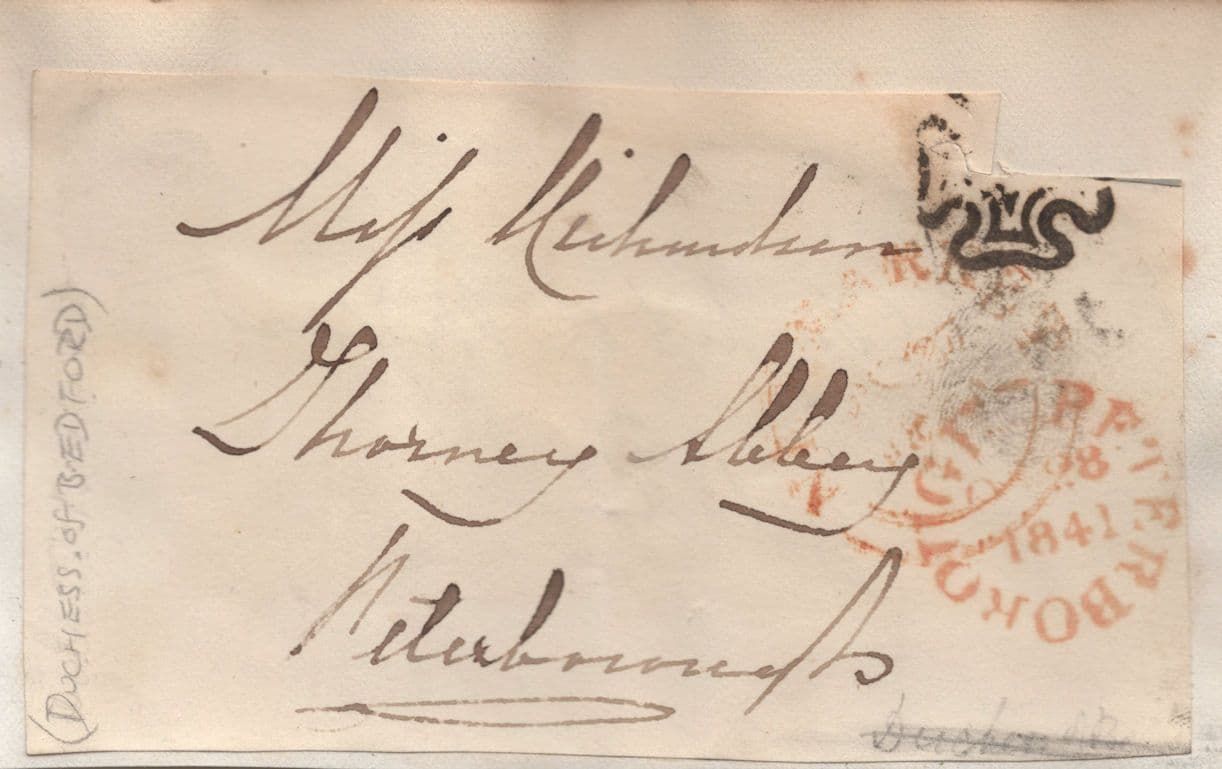 Miss Richardson
Thorney Abbey
Peterborough
(DUCHESS. of BEDFORD)
PETERBOROUGH
28
1841